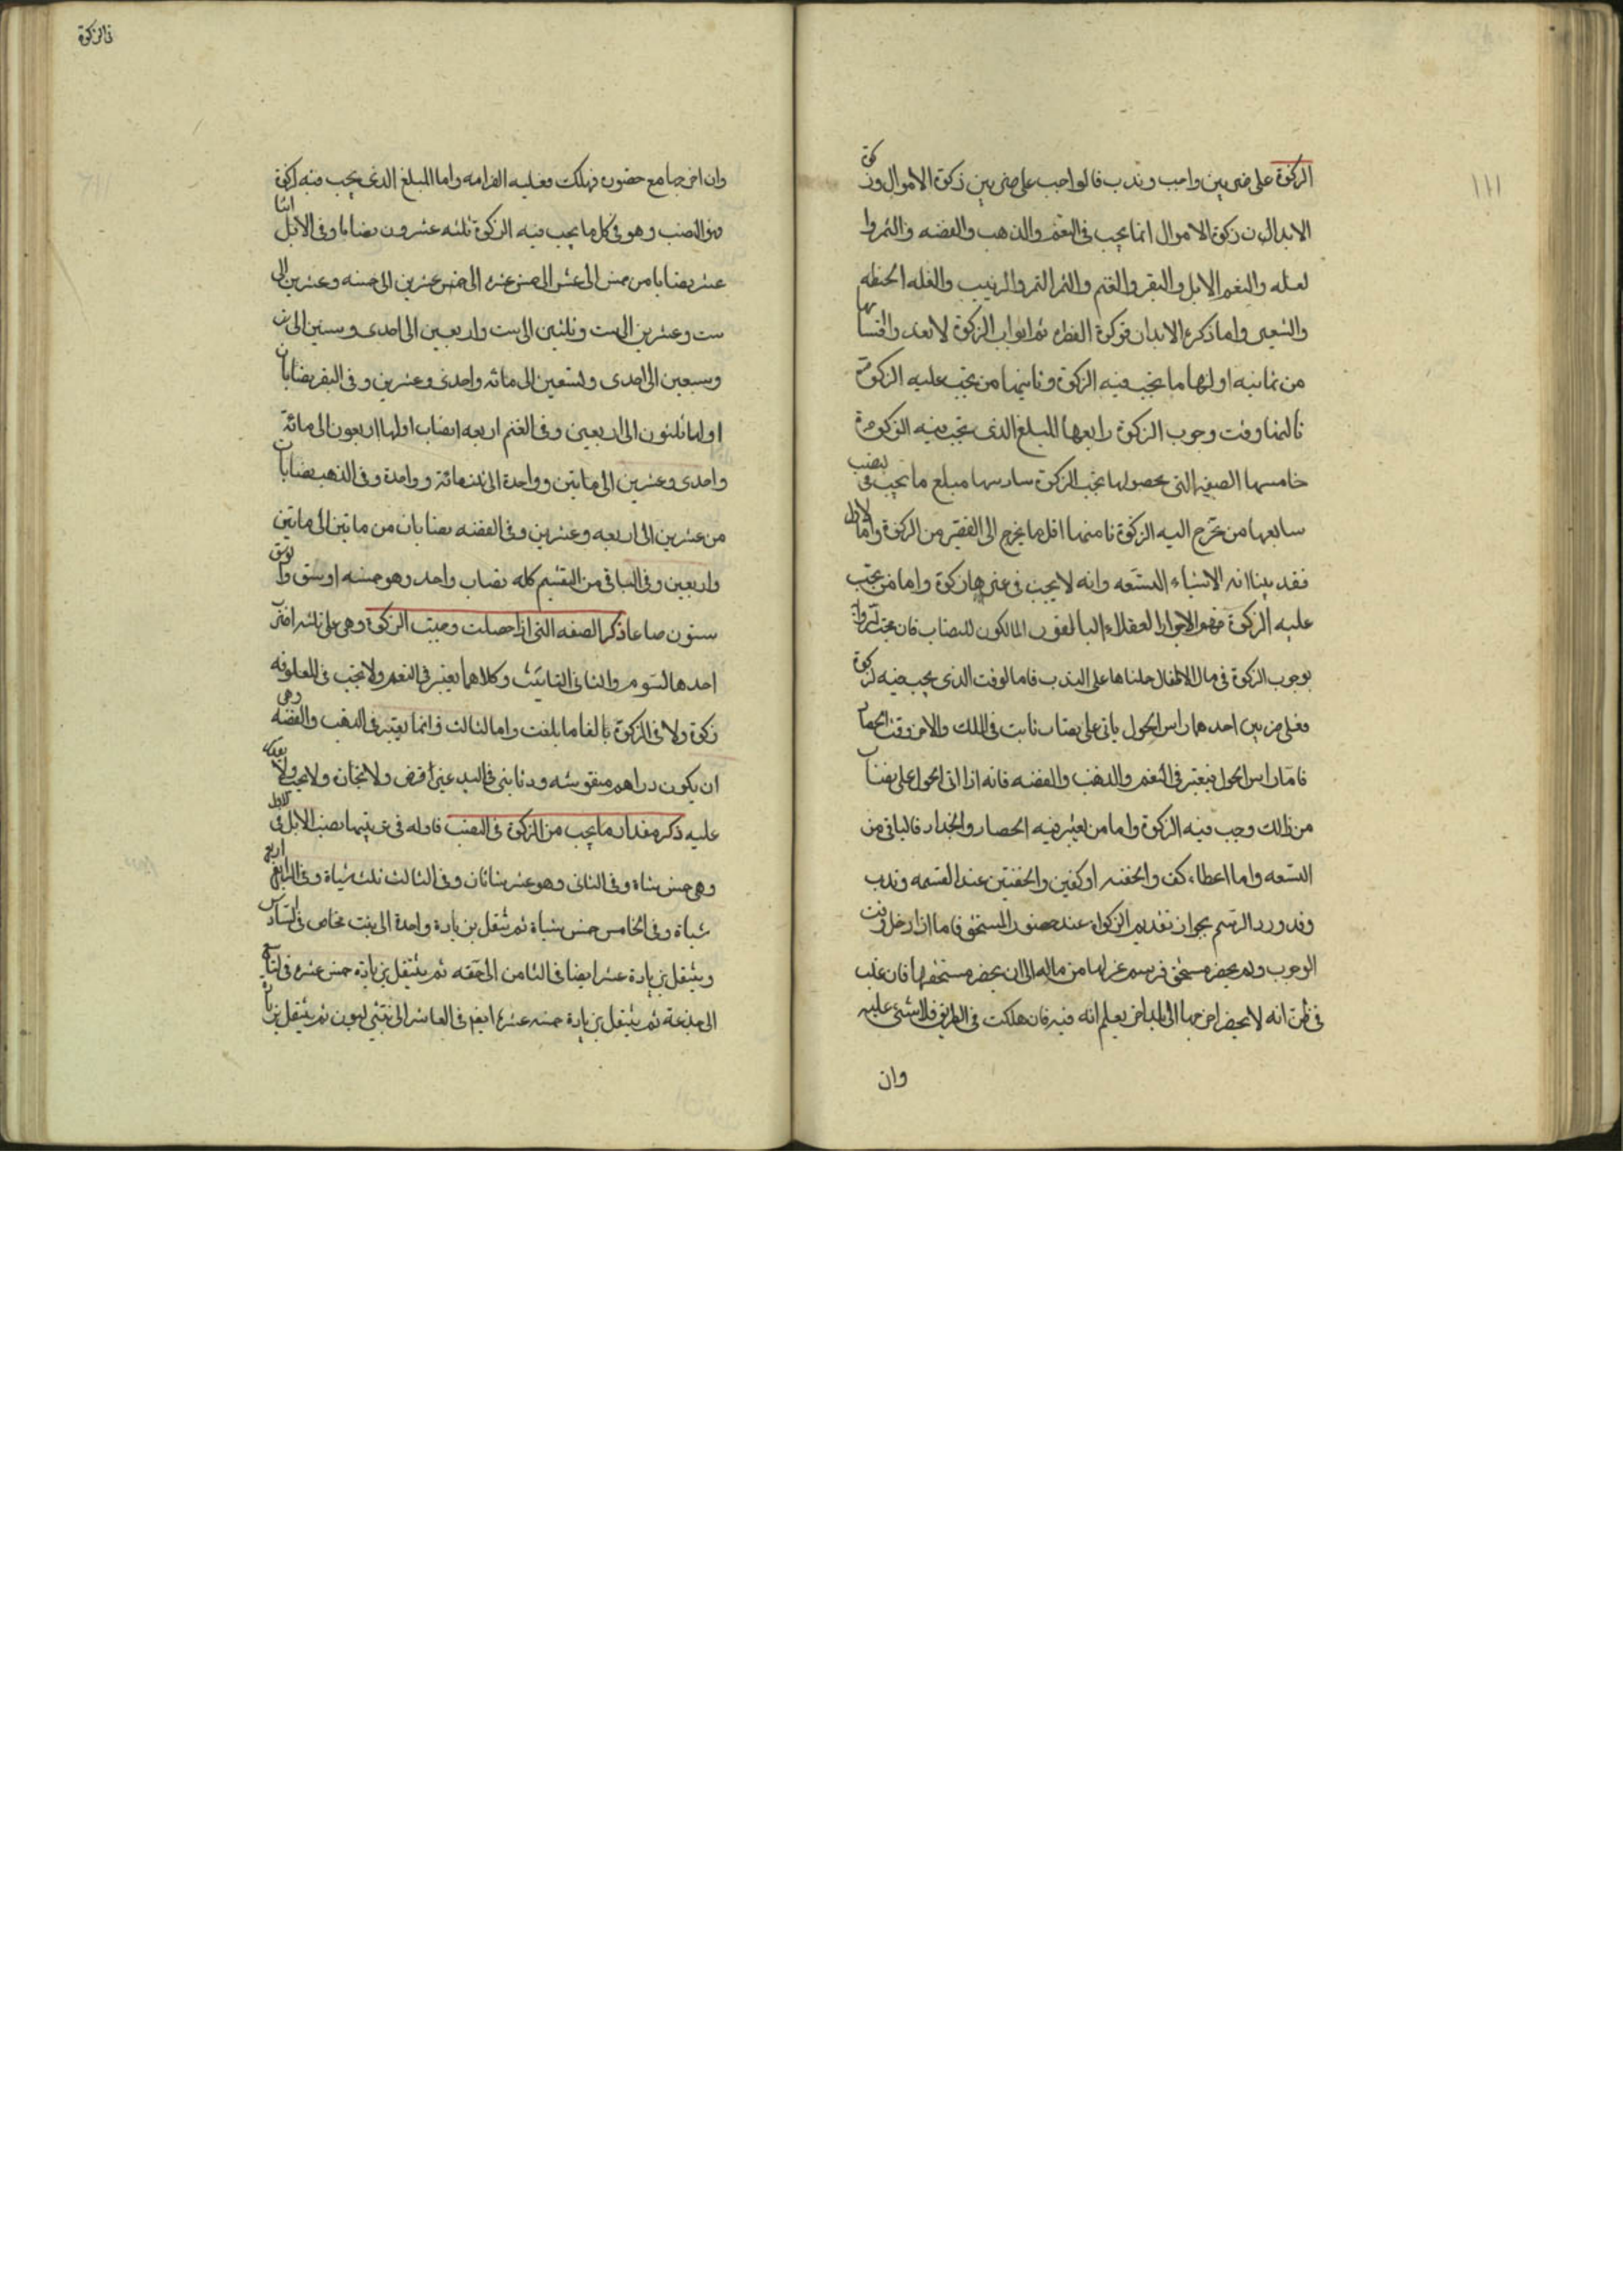 ١١١
الزكوة على ضربين واجب وندب فالواجب على ضربين زكوة الاموال وزكوة
الابدان زكوة الاموال انما يجب فى النعم والذهب والفضه والثمر وا
لغله والنعم الابل والبقر والغنم والثمر التمر والزبيب والغله الحنطه
والشعير واما ذكر الابدان فزكوة الفطره ثم ابواب الزكوة لابعد واقسامها
من ثمانيه اولها ما يجب فيه الزكوة وثانيها من يجب عليه الزكوة
ثالثها وقت وجوب الزكوة رابعها المبلغ الذى يجب فيه الزكوة
خامسها الصفه التى بحصولها يجب الزكوة سادسها مبلغ ما يجب فى النصب
سابعها من تخرج اليه الزكوة ثامنها اقل ما يخرج الى الفقير من الزكوة واما الاول
فقد بينا انه الاشياء التسعه وانه لا يجب فى غيرها زكوة واما من يجب
عليه الزكوة فهو الاحرار العقلاء البالغون المالكون للنصاب فان
بوجوب الزكوة فى مال الاطفال حملناها على الندب فاما لوقت الذى يجب فيه الزكوة
فعلى ضربين احدهما راس الحول ياتى على نصاب ثابت فى الملك والاخر وقت الحصاد
فاما راس الحول فيعتبر فى النعم والذهب والفضه فانه اذا اتى الحول على نصاب
من ذلك وجب فيه الزكوة واما من يعتبر فيه الحصار والجداد فالباقى من
التسعه واما اعطاء كف والحفنه او كفين والحفنتين عند القسمه وندب
وقد ورد الرسم بجواز تقديم الزكواة عند حضور المستحق فاما اذا دخل وقت
الوجوب ولم يحضر مستحق فرسم عزلها من ماله الى ان يحضر مستحقها فان غلب
فى ظن انه لا يحضر اخرجها الى البلد اخر يعلم انه فيه فان هلكت فى الطريق فلا شئ عليه
وان
فى الزكوة
وان اخرجها مع حضوره فهلكت فعليه الغرامه واما المبلغ الذى يجب فيه الزكوة
فهو النصب وهو فى كل ما يجب فيه الزكوة ثلثه عشرون نصابا وفى الابل اثنا
عشر نصابا من خمس الى عشر الى خمس عشره الى خمس عشرين الى خمسه وعشرين الى
ست وعشرين الى ست وثلثين الى ست واربعين الى احدى وستين الى ست
وسبعين الى احدى وتسعين الى مائه واحدى وعشرين وفى البقر نصابان
اولها ثلثون الى اربعين وفى الغنم اربعه انصاب اولها اربعون الى مائة
واحدى وعشرين الى ماتين وواحدة الى ثلثمائة وواحدة وفى الذهب نصابان
من عشرين الى اربعه وعشرين وفى الفضه نصابان من ماتين الى ماتين
واربعين وفى الباقى من القسم كله نصاب واحد وهو خمسه اوسق والوسق
ستون صاعا ذكر الصفه التى اذا حصلت وجبت الزكوة وهى على ثلثه اضرب
احدها السوم والثانى التانيث وكلاهما يعتبر فى النعم ولا تجب فى المعلوفه
زكوة ولا فى الزكوة بالغا ما بلغت واما الثالث فانما يعتبر فى الذهب والفضه وهى
ان يكون دراهم منقوشه ودنانير فى اليد غير قرض ولا تجان ولا يجب ولا بعد
عليه ذكر مقدار ما يجب من الزكوة فى النصب فاوله فى ترتيبها نصب الابل فى الاول
وهى خمس شاة وفى الثانى وهو عشر شاتان وفى الثالث ثلث شياة وفى الرابع اربع
شياة وفى الخامس خمس شياة ثم تنقل بزيادة واحدة الى بنت مخاض فى السادس
وينتقل بزيادة عشر ايضا فى الثامن الى حقه ثم ينتقل بزيادة خمس عشره فى التاسع
الى جذعة ثم ينتقل بزيادة خمسه عشره ايضم فى العاشر الى بنتى لبون ثم ينتقل بزيادة